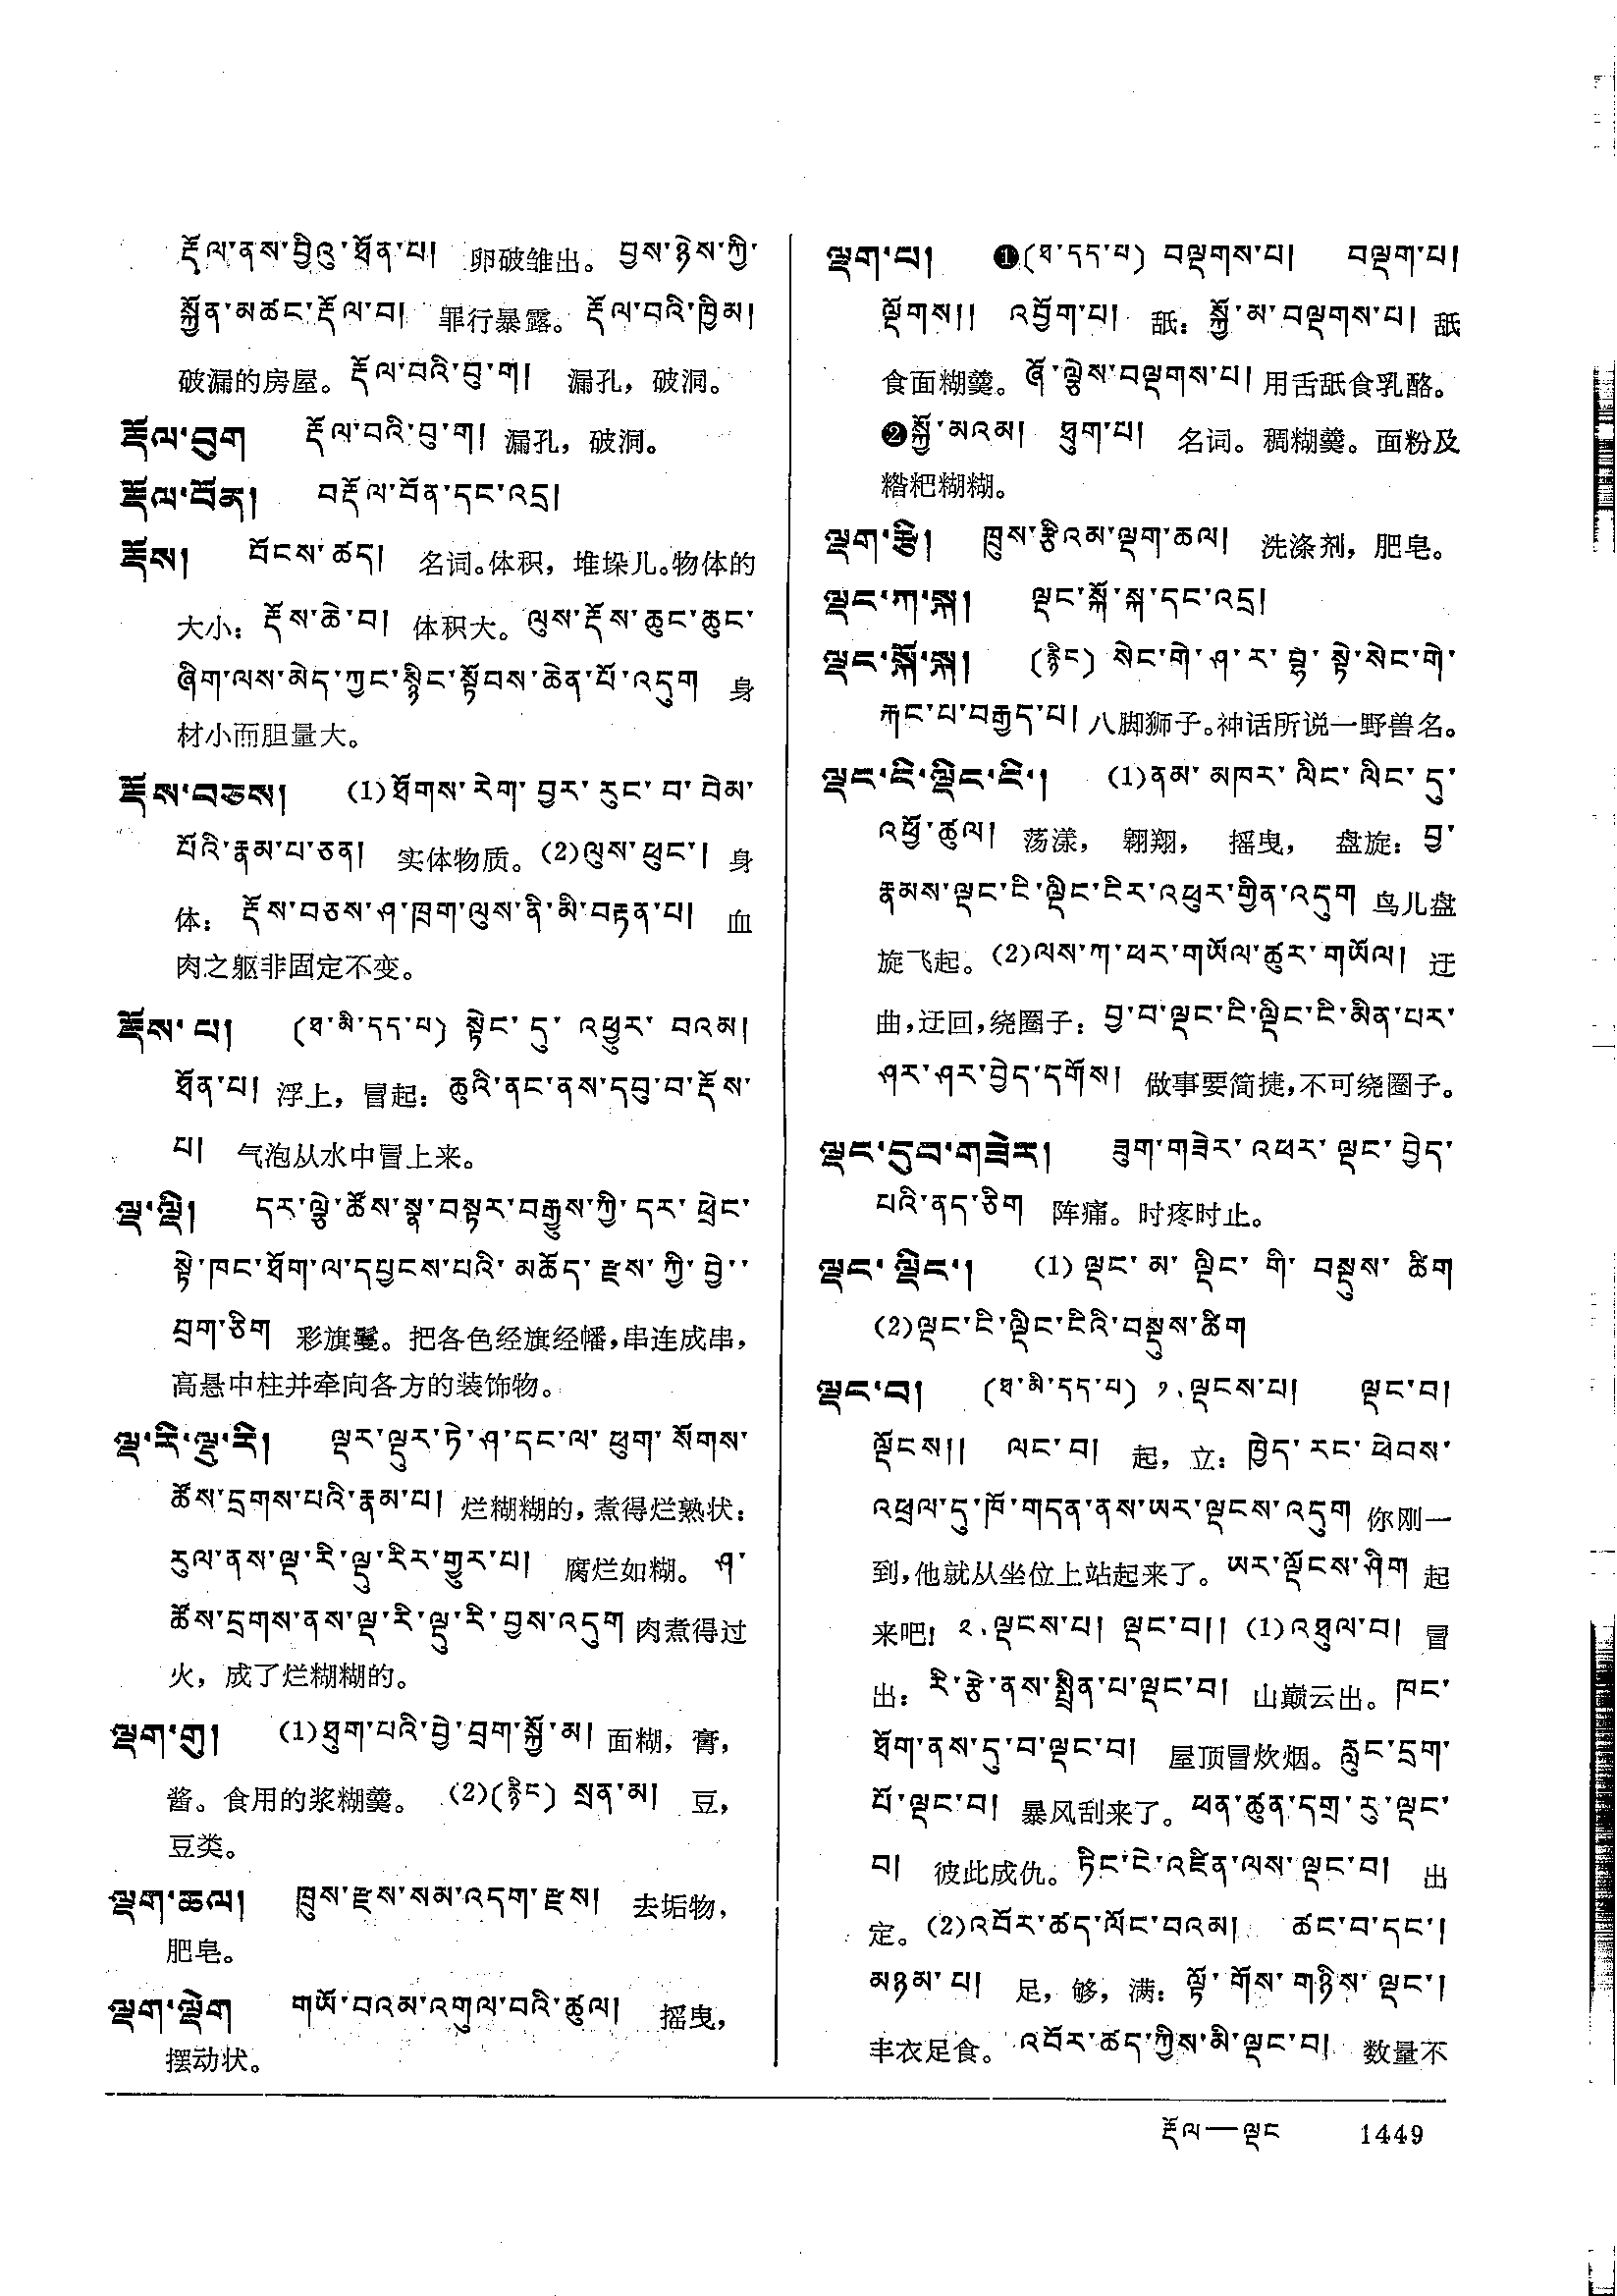 རྡོལ་ནས་བྱིའུ་ཐོན་པ། 卵破雏出。 བྱས་ཉེས་ཀྱི་
སྐྱོན་མཚང་རྡོལ་བ། 罪行暴露。 རྡོལ་བའི་ཁྱིམ།
破漏的房屋。 རྡོལ་བའི་བུ་ག། 漏孔，破洞。
རྡོལ་བུག རྡོལ་བའི་བུ་ག། 漏孔，破洞。
རྡོལ་བོན། བརྡོལ་བོན་དང་འདྲ།
རྡོས། བོངས་ཚད། 名词。体积，堆垛儿。物体的
大小： རྡོས་ཆེ་བ། 体积大。 ལུས་རྡོས་ཆུང་ཆུང་
ཞིག་ལས་མེད་ཀྱང་སྙིང་སྟོབས་ཆེན་པོ་འདུག 身
材小而胆量大。
རྡོས་བཅས། (1)ཐོགས་རེག་བྱར་རུང་བ་བེམ་
པོའི་རྣམ་པ་ཅན། 实体物质。(2)ལུས་ཕུང་། 身
体： རྡོས་བཅས་ཤ་ཁྲག་ལུས་ནི་མི་བརྟན་པ། 血
肉之躯非固定不变。
རྡོས་པ། (ཐ་མི་དད་པ) སྟེང་དུ་འཕྱུར་བའམ།
ཐོན་པ། 浮上，冒起： ཆུའི་ནང་ནས་དབུ་བ་རྡོས་
པ། 气泡从水中冒上来。
ལྡ་ལྡི། དར་ལྕེ་ཚོས་སྣ་བསྟར་བརྒྱུས་ཀྱི་དར་ཕྲེང་
སྟེ་ཁང་ཐོག་ལ་དཔྱངས་པའི་མཆོད་རྫས་ཀྱི་བྱེ་་
བྲག་ཅིག 彩旗鬘。把各色经旗经幡，串连成串，
高悬中柱并牵向各方的装饰物。
ལྡ་རི་ལྡུ་རི། ལྡར་ལྡུར་ཏེ་ཤ་དང་ལ་ཕུག་སོགས་
ཚོས་དྲགས་པའི་རྣམ་པ། 烂糊糊的，煮得烂熟状：
རུལ་ནས་ལྡ་རི་ལྡུ་རིར་གྱུར་པ། 腐烂如糊。 ཤ་
ཚོས་དྲགས་ནས་ལྡ་རི་ལྡུ་རི་བྱས་འདུག 肉煮得过
火，成了烂糊糊的。
ལྡག་གུ། (1)ཐུག་པའི་བྱེ་བྲག་སྐྱོ་མ། 面糊，膏，
酱。食用的浆糊羹。 (2)(རྙིང) སྲན་མ། 豆，
豆类。
ལྡག་ཆལ། ཁྲུས་རྫས་སམ་འདག་རྫས། 去垢物，
肥皂。
ལྡག་ལྡེག གཡོ་བའམ་འགུལ་བའི་ཚུལ། 摇曳，
摆动状。
ལྡག་པ། ❶(ཐ་དད་པ) བལྡགས་པ། བལྡག་པ།
ལྡོགས།། འབྱོག་པ། 舐： སྐྱོ་མ་བལྡགས་པ། 舐
食面糊羹。 ཞོ་ལྕེས་བལྡགས་པ། 用舌舐食乳酪。
❷སྐྱོ་མའམ། ཐུག་པ། 名词。稠糊羹。面粉及
糌粑糊糊。
ལྡག་རྩི། ཁྲུས་རྩིའམ་ལྡག་ཆལ། 洗涤剂，肥皂。
ལྡང་ཀ་སྐ། ལྡང་སྐོ་སྐ་དང་འདྲ།
ལྡང་སྐོ་སྐ། (རྙིང) སེང་གེ་ཤ་ར་བྷ་སྟེ་སེང་གེ་
རྐང་པ་བརྒྱད་པ། 八脚狮子。神话所说一野兽名。
ལྡང་ངི་ལྡིང་ངི་། (1)ནམ་མཁར་ལིང་ལིང་དུ་
འཕྱོ་ཚུལ། 荡漾， 翱翔， 摇曳， 盘旋： བྱ་
རྣམས་ལྡང་ངི་ལྡིང་ངིར་འཕུར་གྱིན་འདུག 鸟儿盘
旋飞起。(2)ལས་ཀ་ཕར་གཡོལ་ཚུར་གཡོལ། 迂
曲，迂回，绕圈子： བྱ་བ་ལྡང་ངི་ལྡིང་ངི་མིན་པར་
ཤར་ཤར་བྱེད་དགོས། 做事要简捷，不可绕圈子。
ལྡང་དུབ་གཟེར། ཟུག་གཟེར་འཕར་ལྡང་བྱེད་
པའི་ནད་ཅིག 阵痛。时疼时止。
ལྡང་ལྡིང་། (1) ལྡང་མ་ལྡིང་གི་བསྡུས་ཚིག
(2)ལྡང་ངི་ལྡིང་ངིའི་བསྡུས་ཚིག
ལྡང་བ། (ཐ་མི་དད་པ) ༡.ལྡངས་པ། ལྡང་བ།
ལྡོངས།། ལང་བ། 起，立： ཁྱེད་རང་ཕེབས་
འཕྲལ་དུ་ཁོ་གདན་ནས་ཡར་ལྡངས་འདུག 你刚一
到，他就从坐位上站起来了。 ཡར་ལྡོངས་ཤིག 起
来吧！ ༢.ལྡངས་པ། ལྡང་བ།། (1)འཐུལ་བ། 冒
出： རི་རྩེ་ནས་སྤྲིན་པ་ལྡང་བ། 山巅云出。 ཁང་
ཐོག་ནས་དུ་བ་ལྡང་བ། 屋顶冒炊烟。 རླུང་དྲག་
པོ་ལྡང་བ། 暴风刮来了。 ཕན་ཚུན་དགྲ་རུ་ལྡང་
བ། 彼此成仇。 ཏིང་ངེ་འཛིན་ལས་ལྡང་བ། 出
定。(2)འབོར་ཚད་ལོང་བའམ། ཚང་བ་དང་།
མཉམ་པ། 足，够，满： ལྟོ་གོས་གཉིས་ལྡང་།
丰衣足食。 འབོར་ཚད་ཀྱིས་མི་ལྡང་བ། 数量不
རྡོལ—ལྡང 1449